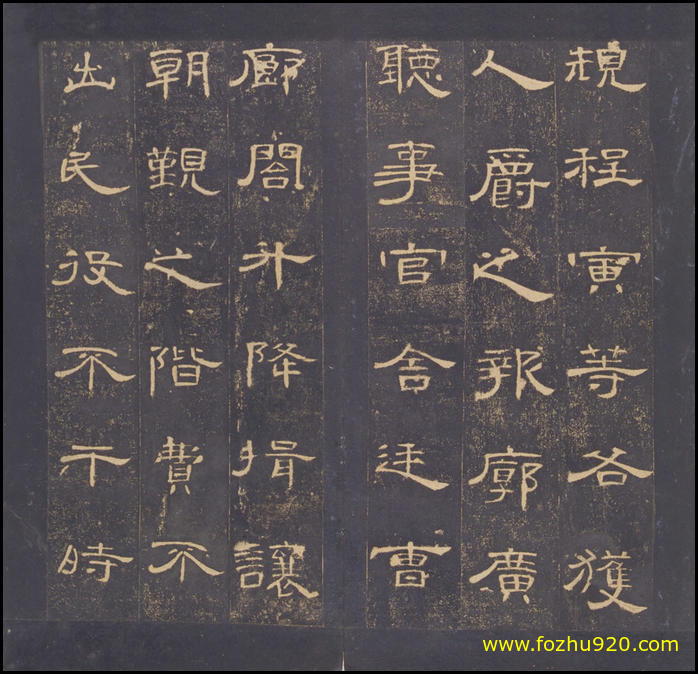 規程寅等各獲
人爵之報廓廣
聽事官舍廷曹
廊閤升降揖讓
朝覲之階費不
出民役不干時
www.fozhu920.com